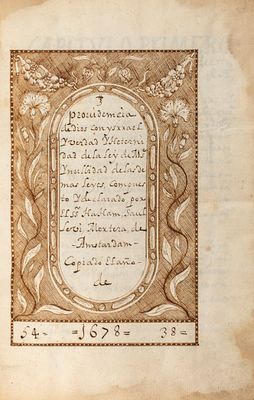 Providencia
de dios con ysrrael
Y verdad Y Heterni
dad de la Ley de
Y nullidad de las de
mas leyes, Compues
to Y declarado por
El Haham, Saul
Levi, Mortera, de
-Amsterdam-
Copiado El año-
de
54- =1678= 38-